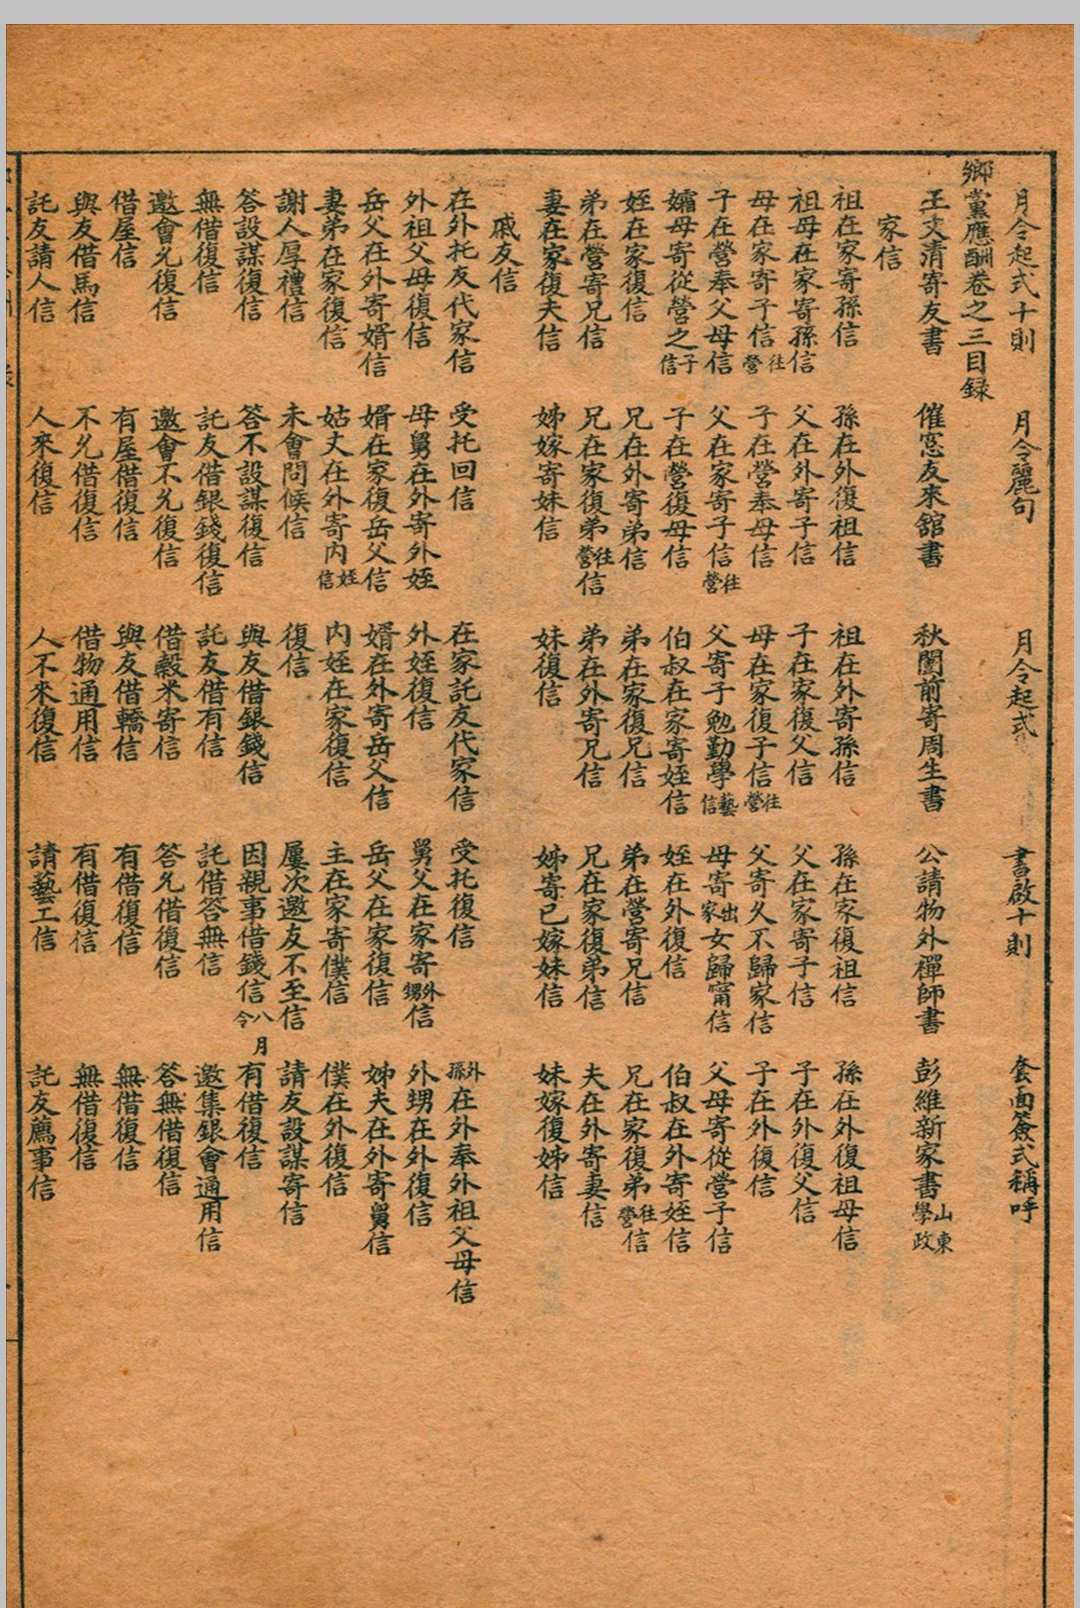 月令起式十則　月令麗句　月令起式　書啟十則　套面簽式稱呼
鄉黨應酬卷之三目録
王文清寄友書　催窓友來舘書　秋闈前寄周生書　公請物外禪師書　彭維新家書山東學政
家信
祖在家寄孫信　孫在外復祖信　祖在外寄孫信　孫在家復祖信　孫在外復祖母信
祖母在家寄孫信　父在外寄子信　子在家復父信　父在家寄子信　子在外復父信
母在家寄子信往營　子在營奉母信　母在家復子信往營　父寄久不歸家信　子在外復信
子在營奉父母信　父在家寄子信往營　父寄子勉勤學藝信　母寄出家女歸甯信　父母寄從營子信
孀母寄從營之子信　子在營復母信　伯叔在家寄姪信　姪在外復信　伯叔在外寄姪信
姪在家復信　兄在外寄弟信　弟在家復兄信　弟在營寄兄信　兄在家復弟往營信
弟在營寄兄信　兄在家復弟往營信　弟在外寄兄信　兄在家復弟信　夫在外寄妻信
妻在家復夫信　姊嫁寄妹信　妹復信　姊寄已嫁妹信　妹嫁復姊信
戚友信
在外托友代家信　受托回信　在家託友代家信　受托復信　外孫在外奉外祖父母信
外祖父母復信　母舅在外寄外姪　外姪復信　舅父在家寄外甥信　外甥在外復信
岳父在外寄婿信　婿在家復岳父信　婿在外寄岳父信　岳父在家復信　姊夫在外寄舅信
妻弟在家復信　姑丈在外寄內姪信　內姪在家復信　主在家寄僕信　僕在外復信
謝人厚禮信　未會問候信　復信　屢次邀友不至信　請友設謀寄信
答設謀復信　答不設謀復信　與友借銀錢信　因親事借錢信八月令　有借復信
無借復信　託友借銀錢復信　託友借有信　託借答無信　邀集銀會通用信
邀會允復信　邀會不允復信　借穀米寄信　答允借復信　答無借復信
借屋信　有屋借復信　與友借轎信　有借復信　無借復信
與友借馬信　不允借復信　借物通用信　有借復信　無借復信
託友請人信　人來復信　人不來復信　請藝工信　託友薦事信